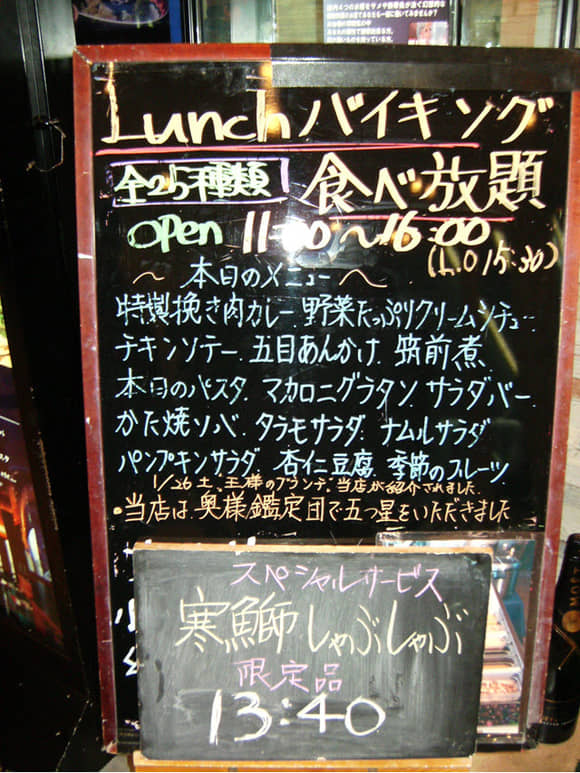 Lunch バイキング
全25種類 食べ放題
open 11:00～16:00
(L.O 15:30)
～ 本日のメニュー ～
特製挽き肉カレー. 野菜たっぷりクリームシチュー
チキンソテー. 五目あんかけ. 筑前煮
本日のパスタ. マカロニグラタン サラダバー
かた焼ソバ. タラモサラダ. ナムルサラダ
パンプキンサラダ. 杏仁豆腐. 季節のフルーツ
1/26 土. 王様のブランチ. で当店が紹介されました.
・当店は. 奥様鑑定団で五つ星をいただきました
スペシャルサービス
寒鰤しゃぶしゃぶ
限定品
13:40